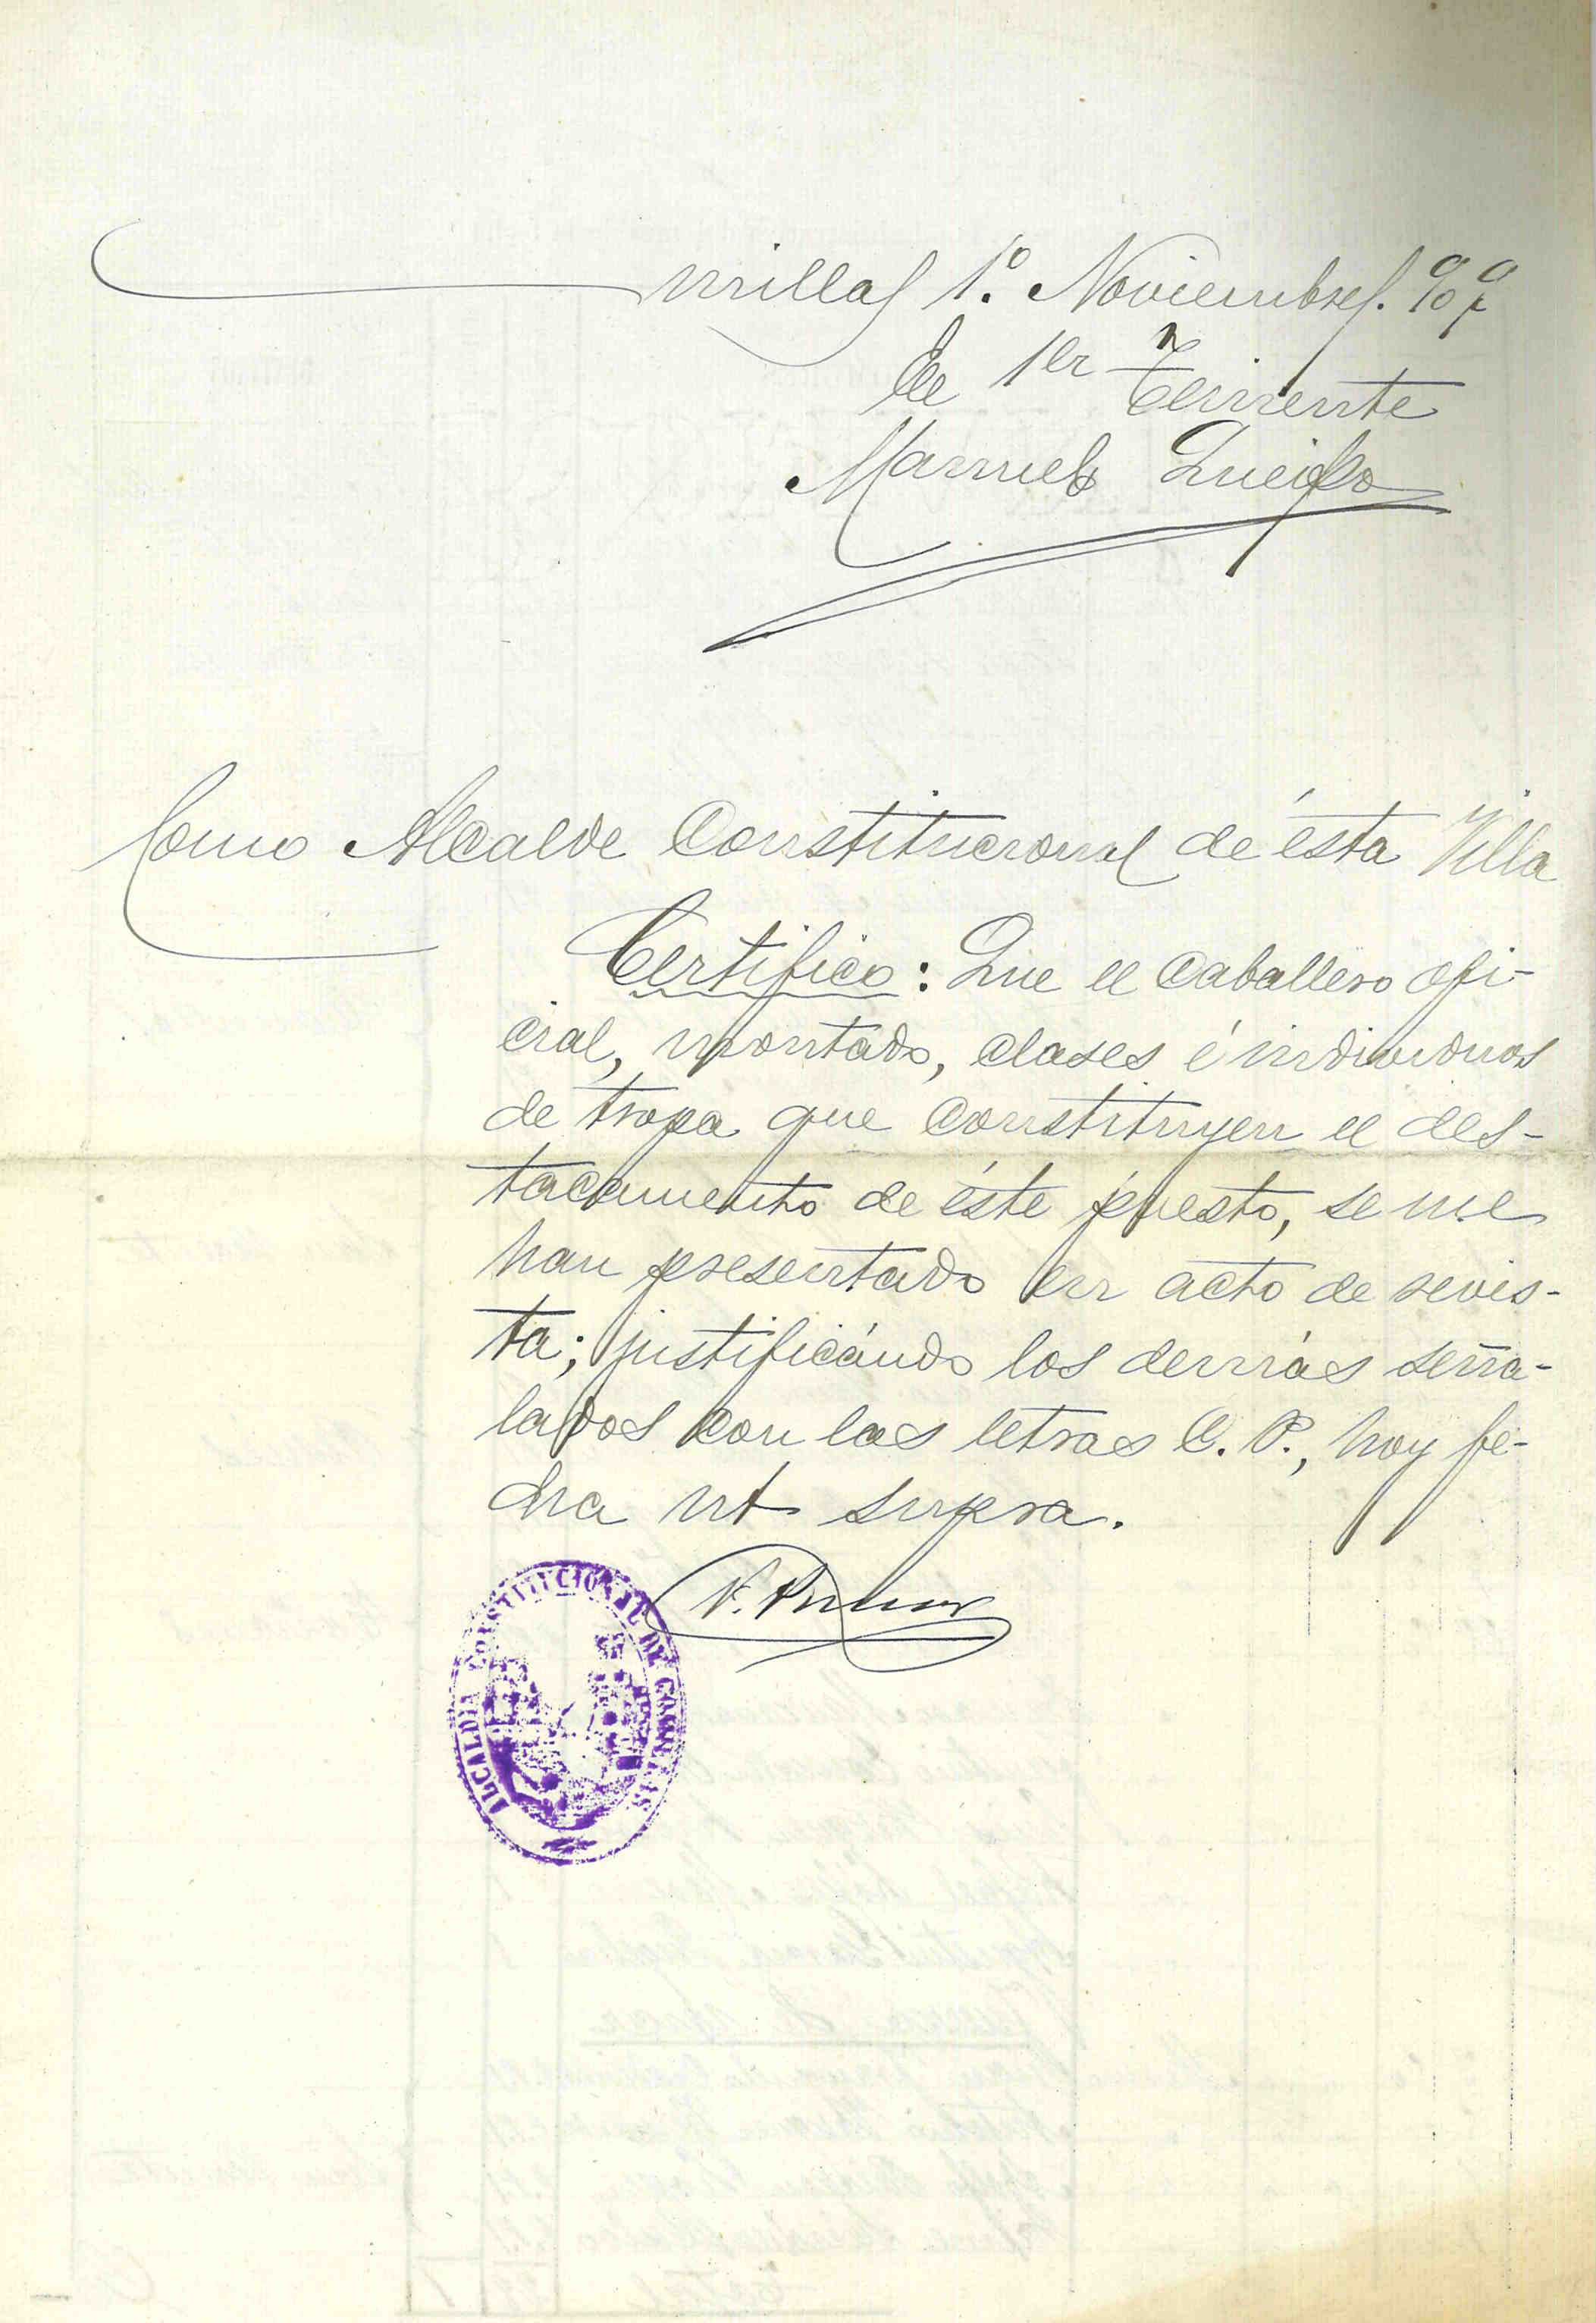 millas 1º. Noviembre. 907
El 1er Teniente
Manuel Queipo
Como Alcalde Constitucional de ésta Villa
Certifico: Que el Caballero ofi-
cial, montado, clases é individuos
de tropa que constituyen el des-
tacamento de éste puesto, se me
han presentado en acto de revis-
ta; justificándo los demás seña-
lados con las letras C. P., hoy fe-
cha ut supra.
ALCALDÍA CONSTITUCIONAL DE